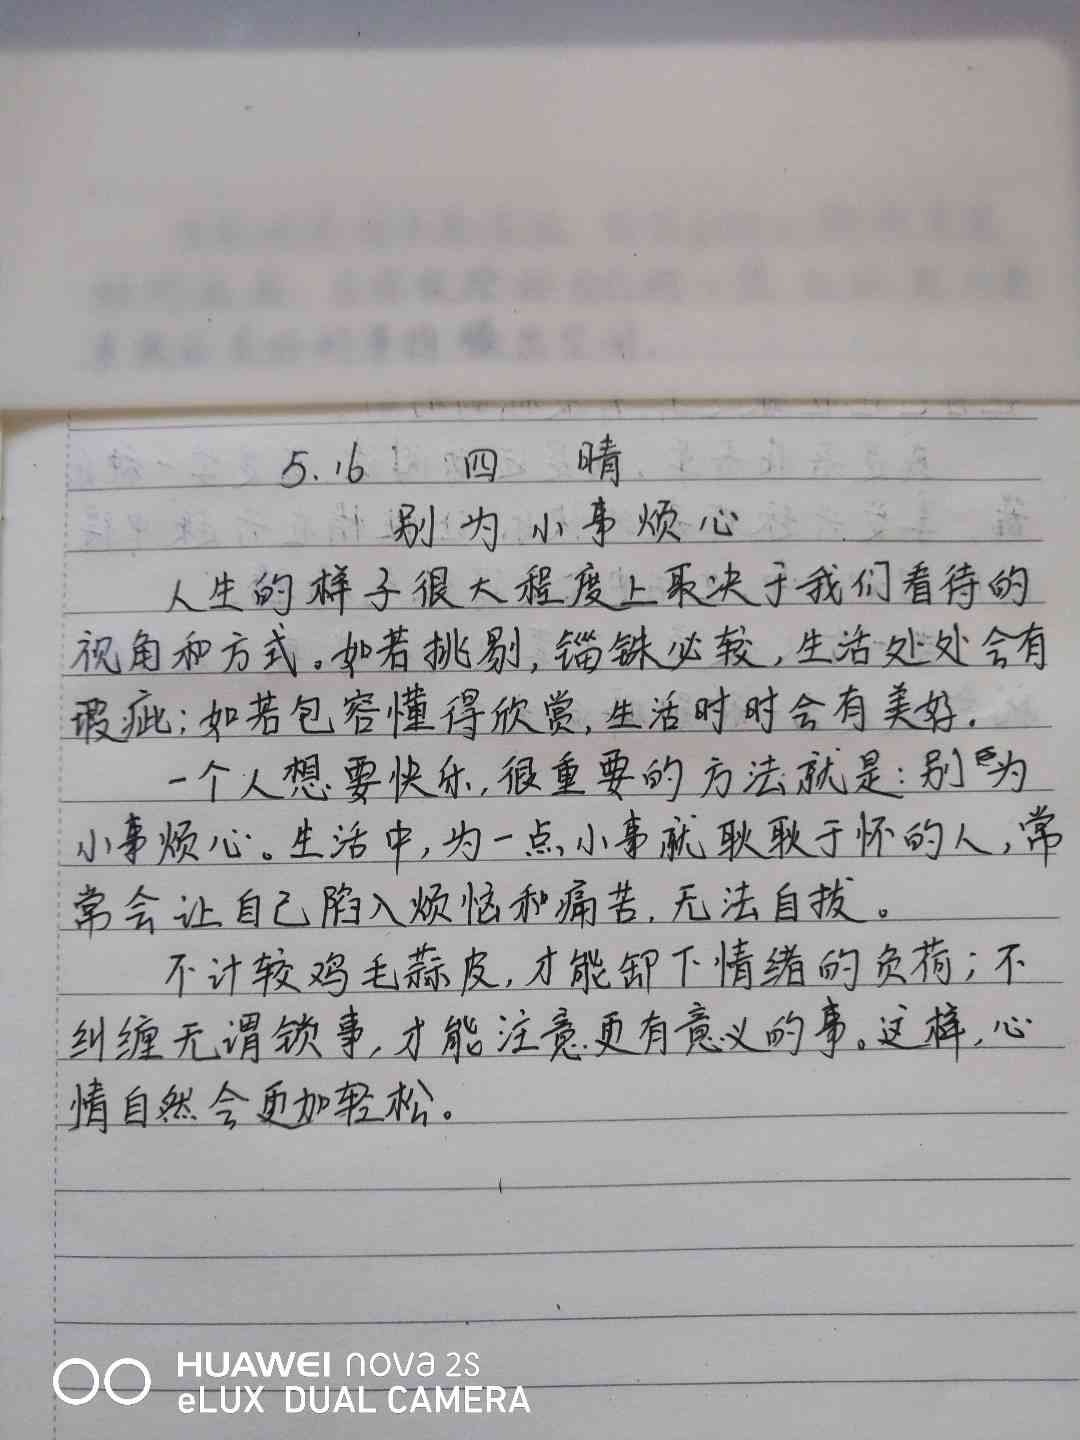 5.16 四 晴
别为小事烦心
人生的样子很大程度上取决于我们看待的
视角和方式。如若挑剔,锱铢必较,生活处处会有
瑕疵;如若包容懂得欣赏,生活时时会有美好.
一个人想要快乐,很重要的方法就是:别为
小事烦心。生活中,为一点小事就耿耿于怀的人,常
常会让自己陷入烦恼和痛苦,无法自拔。
不计较鸡毛蒜皮,才能卸下情绪的负荷;不
纠缠无谓锁事,才能注意更有意义的事。这样,心
情自然会更加轻松。
HUAWEI nova 2S
eLUX DUAL CAMERA